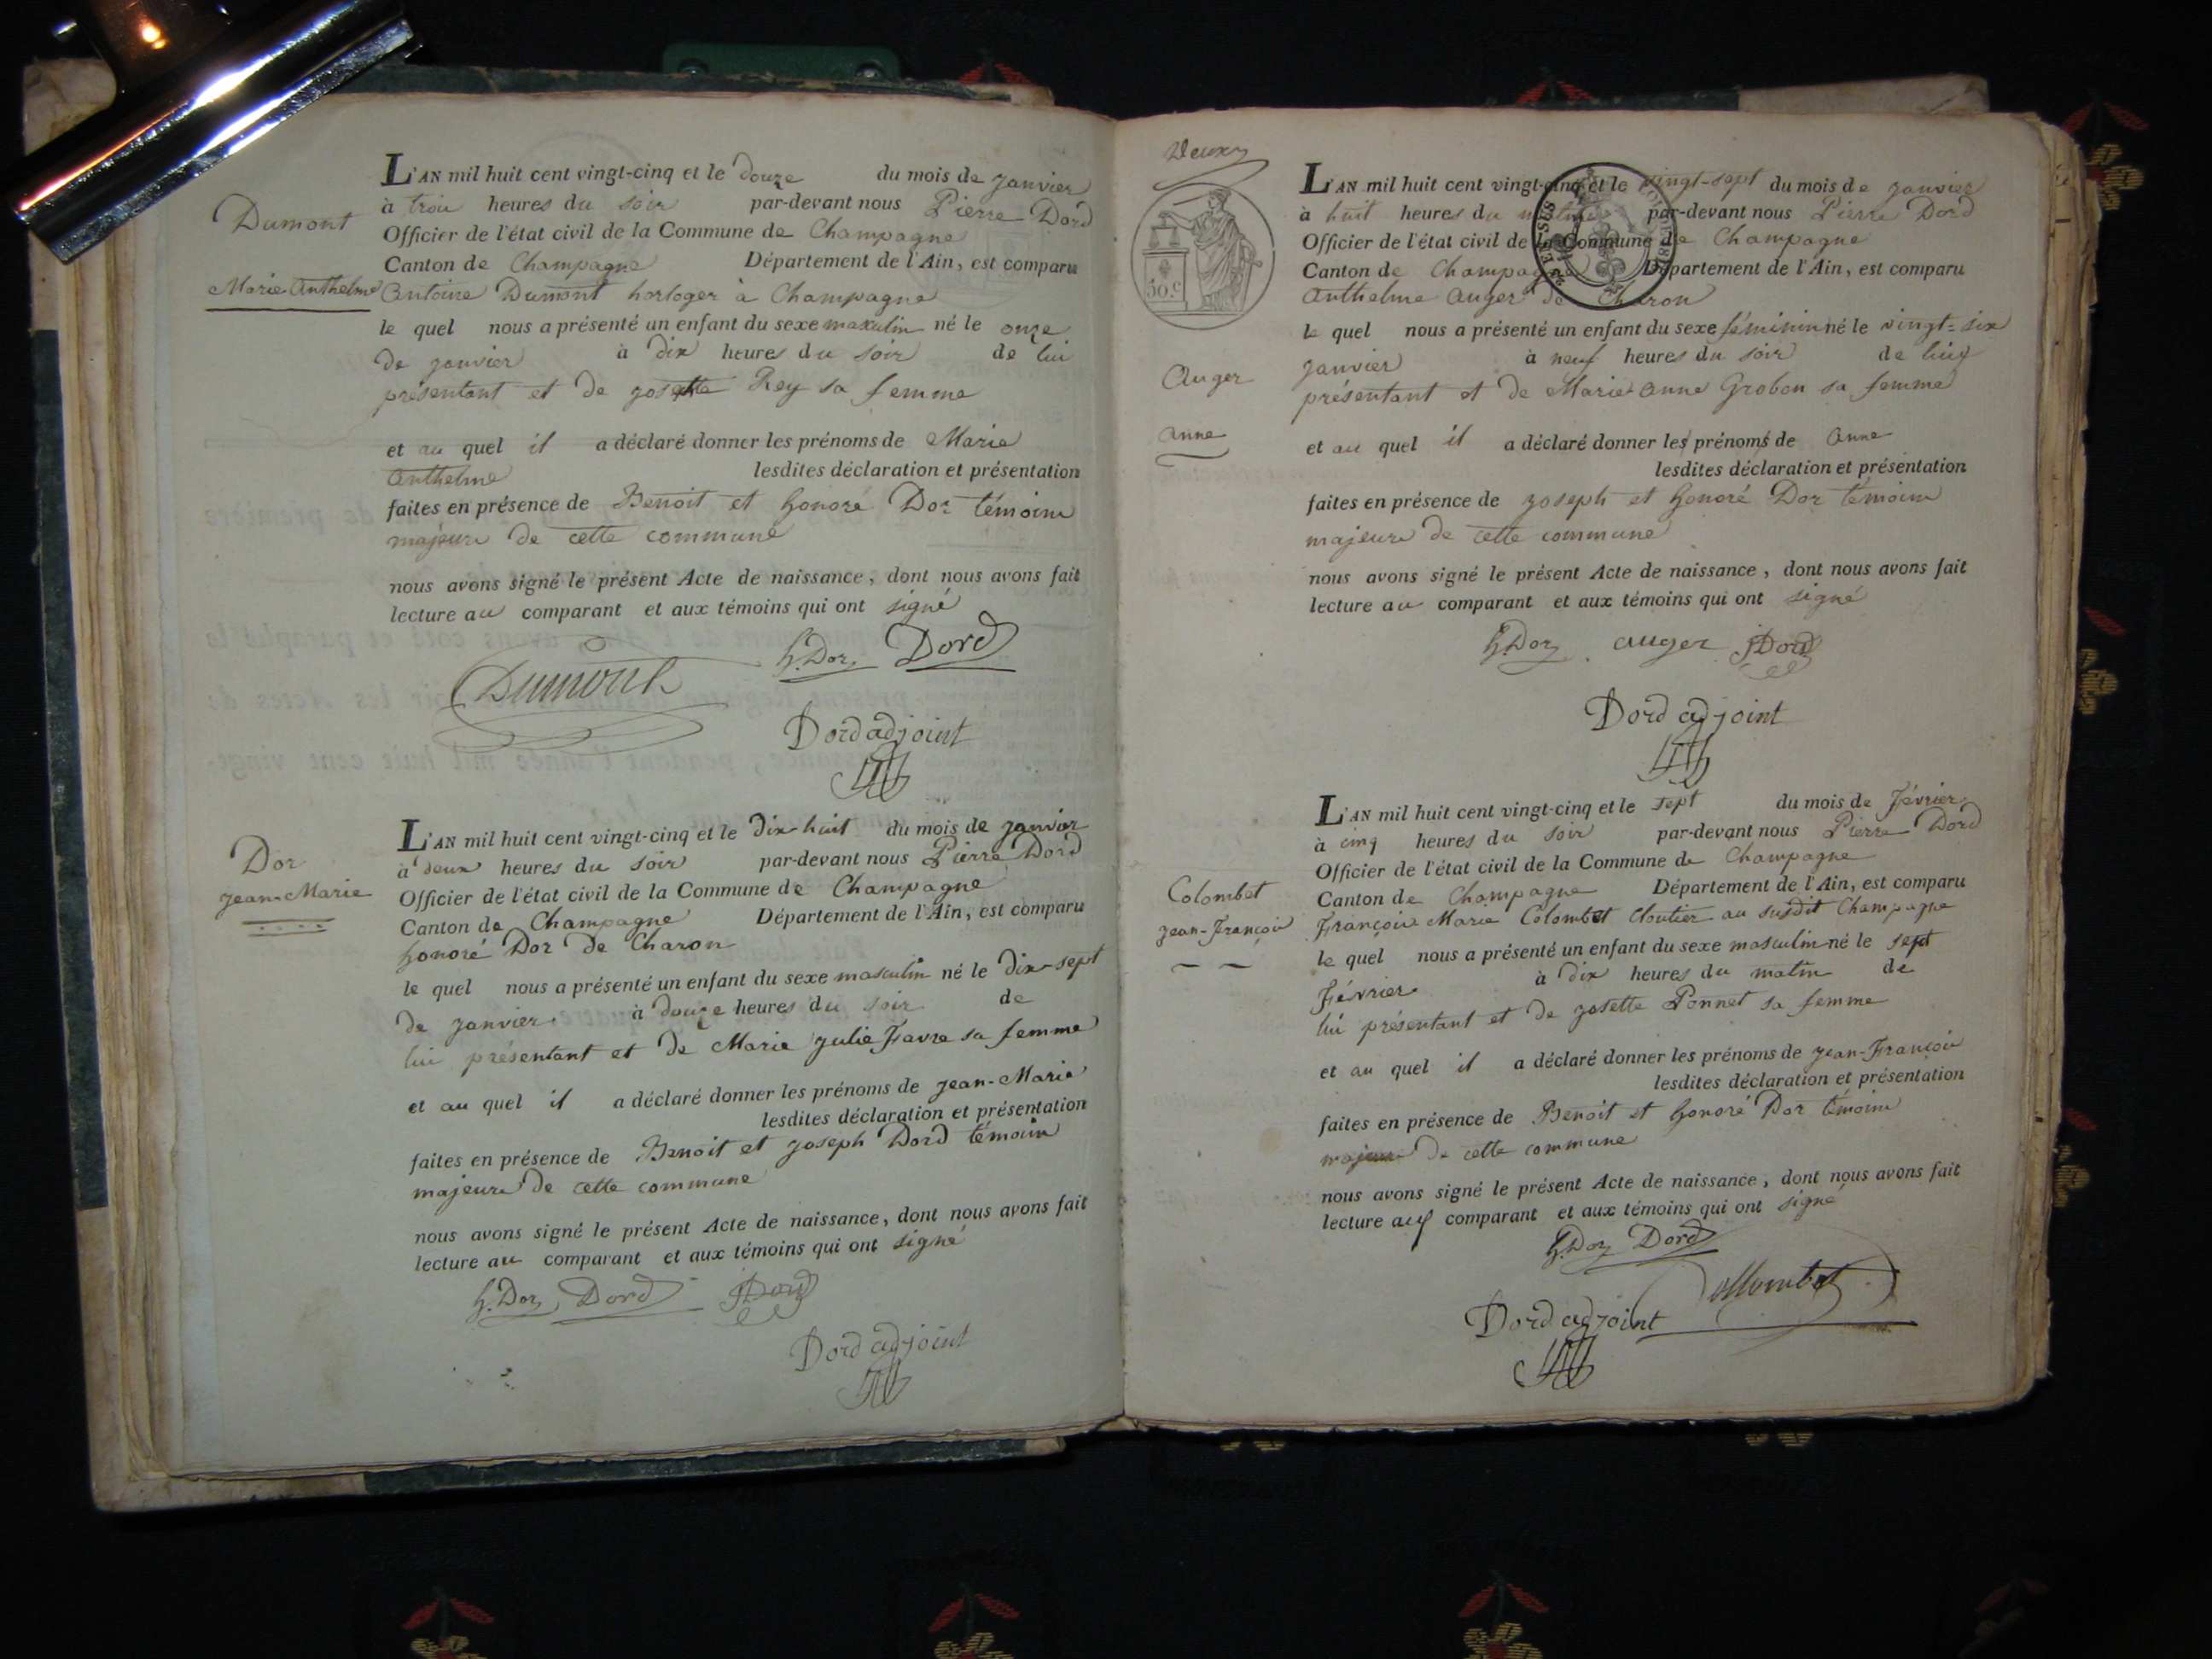 Dumont
Marie Anthelme
L'AN mil huit cent vingt-cinq et le douze du mois de janvier
à trois heures du soir par-devant nous Pierre Dord
Officier de l'état civil de la Commune de Champagne
Canton de Champagne Département de l'Ain, est comparu
Antoine Dumont horloger à Champagne
le quel nous a présenté un enfant du sexe masculin né le onze
de janvier à dix heures du soir de lui
présentant et de josette Rey sa femme
et au quel il a déclaré donner les prénoms de Marie
Anthelme lesdites déclaration et présentation
faites en présence de Benoit et honoré Dor témoins
majeurs de cette commune
nous avons signé le présent Acte de naissance, dont nous avons fait
lecture au comparant et aux témoins qui ont signé
Dumont h. Dor Dord
Dord adjoint
Dor
jean-Marie
L'AN mil huit cent vingt-cinq et le dix-huit du mois de janvier
à deux heures du soir par-devant nous Pierre Dord
Officier de l'état civil de la Commune de Champagne
Canton de Champagne Département de l'Ain, est comparu
honoré Dor de Charon
le quel nous a présenté un enfant du sexe masculin né le dix-sept
de janvier à douze heures du soir de
lui présentant et de Marie julie Favre sa femme
et au quel il a déclaré donner les prénoms de jean-Marie
lesdites déclaration et présentation
faites en présence de Benoit et joseph Dord témoins
majeurs de cette commune
nous avons signé le présent Acte de naissance, dont nous avons fait
lecture au comparant et aux témoins qui ont signé
h. Dor Dord JDord
Dord adjoint
Deux
50.c
Auger
anne
L'AN mil huit cent vingt-cinq et le vingt-sept du mois de janvier
à huit heures du matin par-devant nous Pierre Dord
Officier de l'état civil de la Commune de Champagne
Canton de Champagne Département de l'Ain, est comparu
Anthelme Auger de Charon
le quel nous a présenté un enfant du sexe féminin né le vingt-six
janvier à neuf heures du soir de lui
présentant et de Marie anne Grobon sa femme
et au quel il a déclaré donner les prénoms de anne
lesdites déclaration et présentation
faites en présence de joseph et honoré Dor témoins
majeurs de cette commune
nous avons signé le présent Acte de naissance, dont nous avons fait
lecture au comparant et aux témoins qui ont signé
h. Dor auger JDord
Dord adjoint
Colombet
jean-François
L'AN mil huit cent vingt-cinq et le sept du mois de février
à cinq heures du soir par-devant nous Pierre Dord
Officier de l'état civil de la Commune de Champagne
Canton de Champagne Département de l'Ain, est comparu
François Marie Colombet cloutier au susdit Champagne
le quel nous a présenté un enfant du sexe masculin né le sept
février à dix heures du matin de
lui présentant et de josette Ponnet sa femme
et au quel il a déclaré donner les prénoms de jean-François
lesdites déclaration et présentation
faites en présence de Benoit et honoré Dor témoins
majeurs de cette commune
nous avons signé le présent Acte de naissance, dont nous avons fait
lecture au comparant et aux témoins qui ont signé
h. Dor Dord
Dord adjoint Collombet